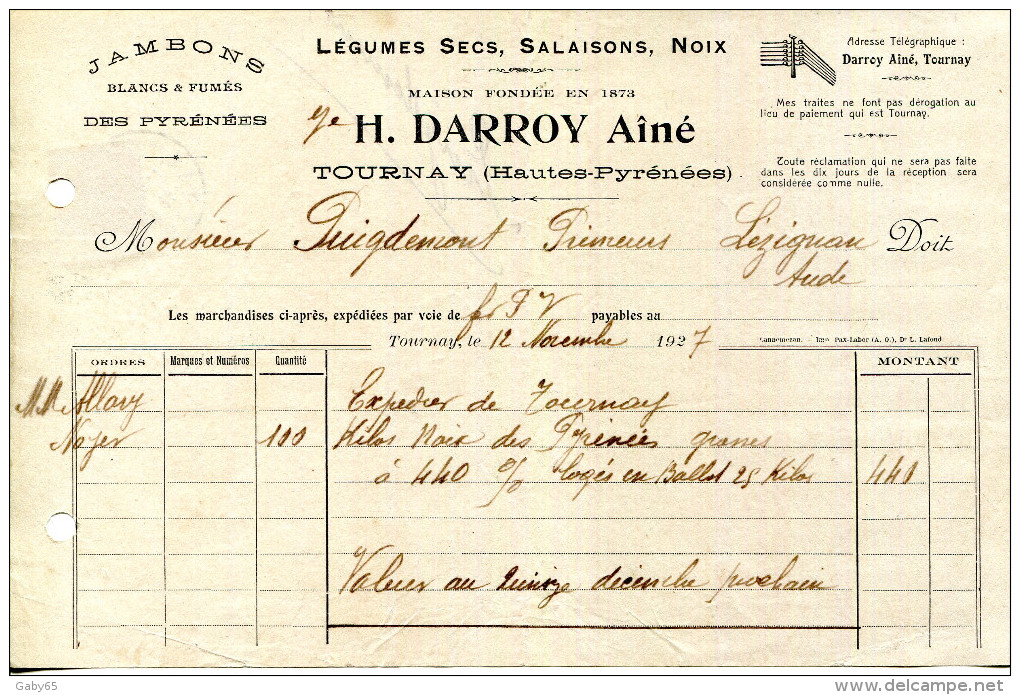 JAMBONS
BLANCS & FUMÉS
DES PYRÉNÉES
LÉGUMES SECS, SALAISONS, NOIX
MAISON FONDÉE EN 1873
H. DARROY Aîné
TOURNAY (Hautes-Pyrénées)
Adresse Télégraphique :
Darroy Aîné, Tournay
Mes traites ne font pas dérogation au
lieu de paiement qui est Tournay.
Toute réclamation qui ne sera pas faite
dans les dix jours de la réception sera
considérée comme nulle.
Monsieur Puigdemont Primeurs Lézignan Doit
Aude
Les marchandises ci-après, expédiées par voie de P V payables au
Tournay, le 12 Novembre 1927
Lannemezan. - Imp. Pax-Labor (A. O.), Dr L. Lafond
ORDRES Marques et Numéros Quantité MONTANT
MM Allary Expedier de Tournay
Noyer 100 Kilos Noix des Pyrénées grosses
à 440 % logés en Ballot 25 Kilos 440
Valeur au quinze décembre prochain
Gaby65
delcampe.net